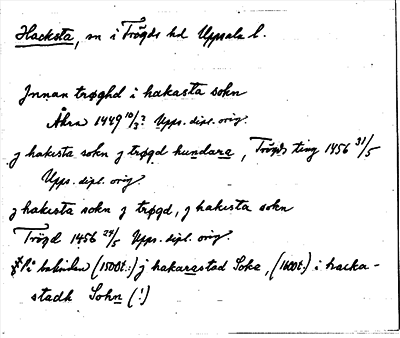 Hacksta, sn i Trögds hd Uppsala l.
Jnnan trøghd i hakasta sokn
Åkra 1449 10/3? Upps. dipl. orig.
j hakista sokn j trøgd hundara, Trögds ting 1456 31/5
Upps. dipl. orig.
j hakista sokn j trøgd, j hakista sokn
Trögd 1456 29/5 Upps. dipl. orig.
På baksidan (1500t.:) j hakarastad Sokn, (1600t.) i hacka-
stadh Sohn (!)